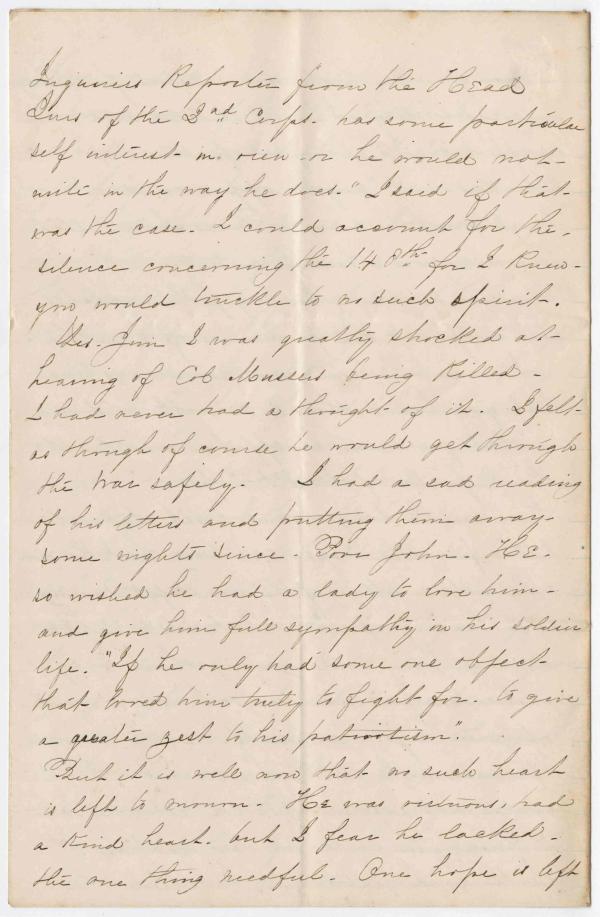 Inquirers Reporter from the Head
Qurs of the 2nd Corps. has some particular
self interest in view or he would not
write in the way he does." I said if that
was the case. I could account for the
silence concerning the 148th for I knew
you would truckle to no such spirit.
Yes. Jim I was greatly shocked at
hearing of Col Mussers being killed.
I had never had a thought of it. I felt
as though of course he would get through
the War safely. I had a sad reading
of his letters and putting them away
some nights since. Poor John. He
so wished he had a lady to love him
and give him full sympathy in his soldier
life. "If he only had some one object
that loved him truly to fight for. to give
a greater zest to his patriotism".
But it is well now that no such heart
is left to mourn. He was virtuous, had
a kind heart. but I fear he lacked
the one thing needful. One hope is left